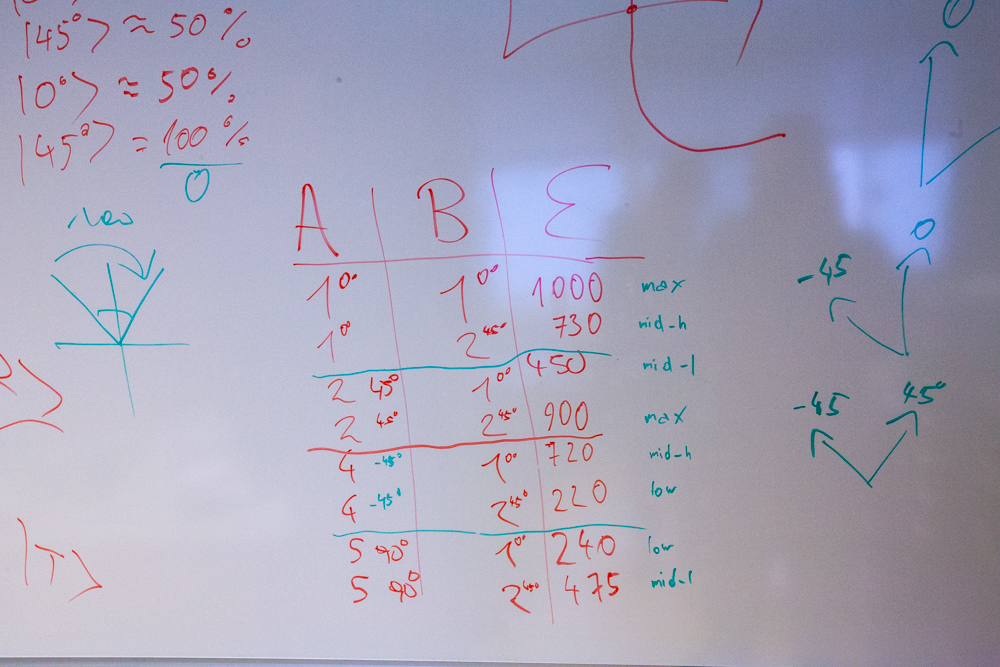 |45°⟩ ≈ 50 %
|0°⟩ ≈ 50%
|45°⟩ = 100 %
0
0
A B Σ
1 0° 1 0° 1000 max
1 0° 2 45° 730 mid-h
2 45° 1 0° 450 mid-l
2 45° 2 45° 900 max
4 -45° 1 0° 720 mid-h
4 -45° 2 45° 220 low
5 90° 1 0° 240 low
5 90° 2 45° 475 mid-l
0
-45
-45 45°
|T⟩